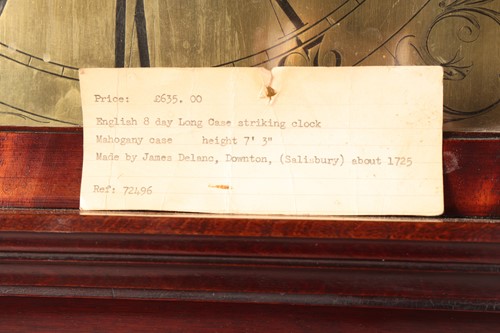 Price: £635. 00
English 8 day Long Case striking clock
Mahogany case height 7' 3"
Made by James Delanc, Downton, (Salisbury) about 1725
Ref: 72496